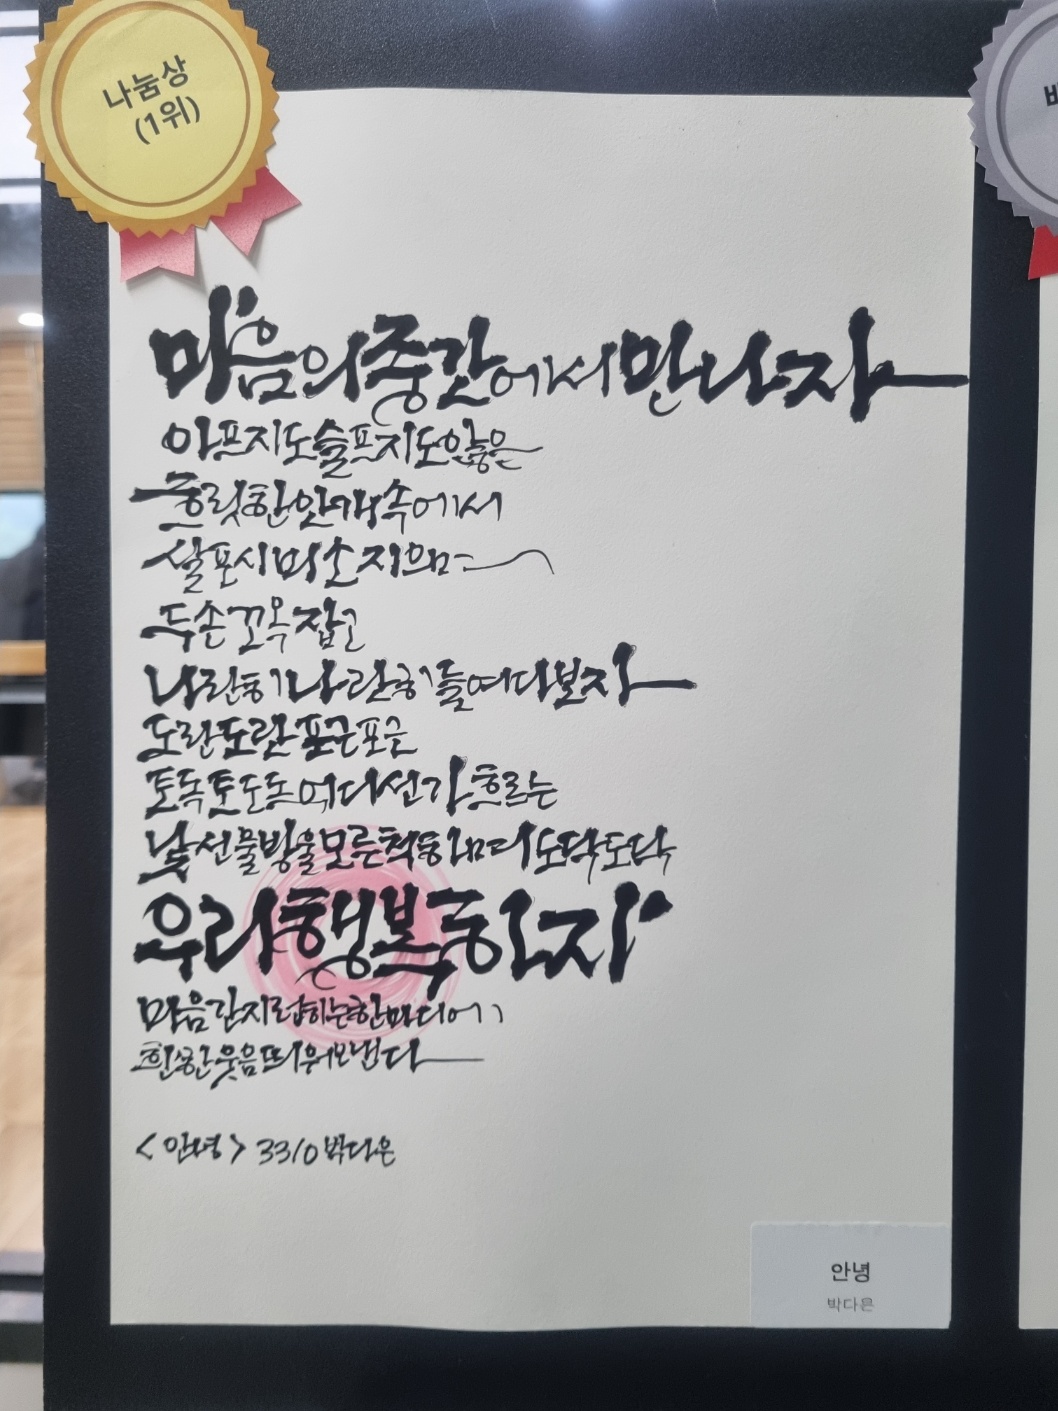 나눔상
(1위)
마음의 중간에서 만나자
아프지도 슬프지도 않은
흐릿한 안개 속에서
살포시 미소 지으며
두 손 꼬옥 잡고
나란히 나란히 들여다보자
도란도란 포근포근
토독토도독 어디선가 흐르는
낯선 물방울 모른 척 등 너머 도닥도닥
우리 행복하자
마음 간지럽히는 한마디에
한 웃음 띄워보낸다
<안녕> 3310 박다은
안녕
박다은